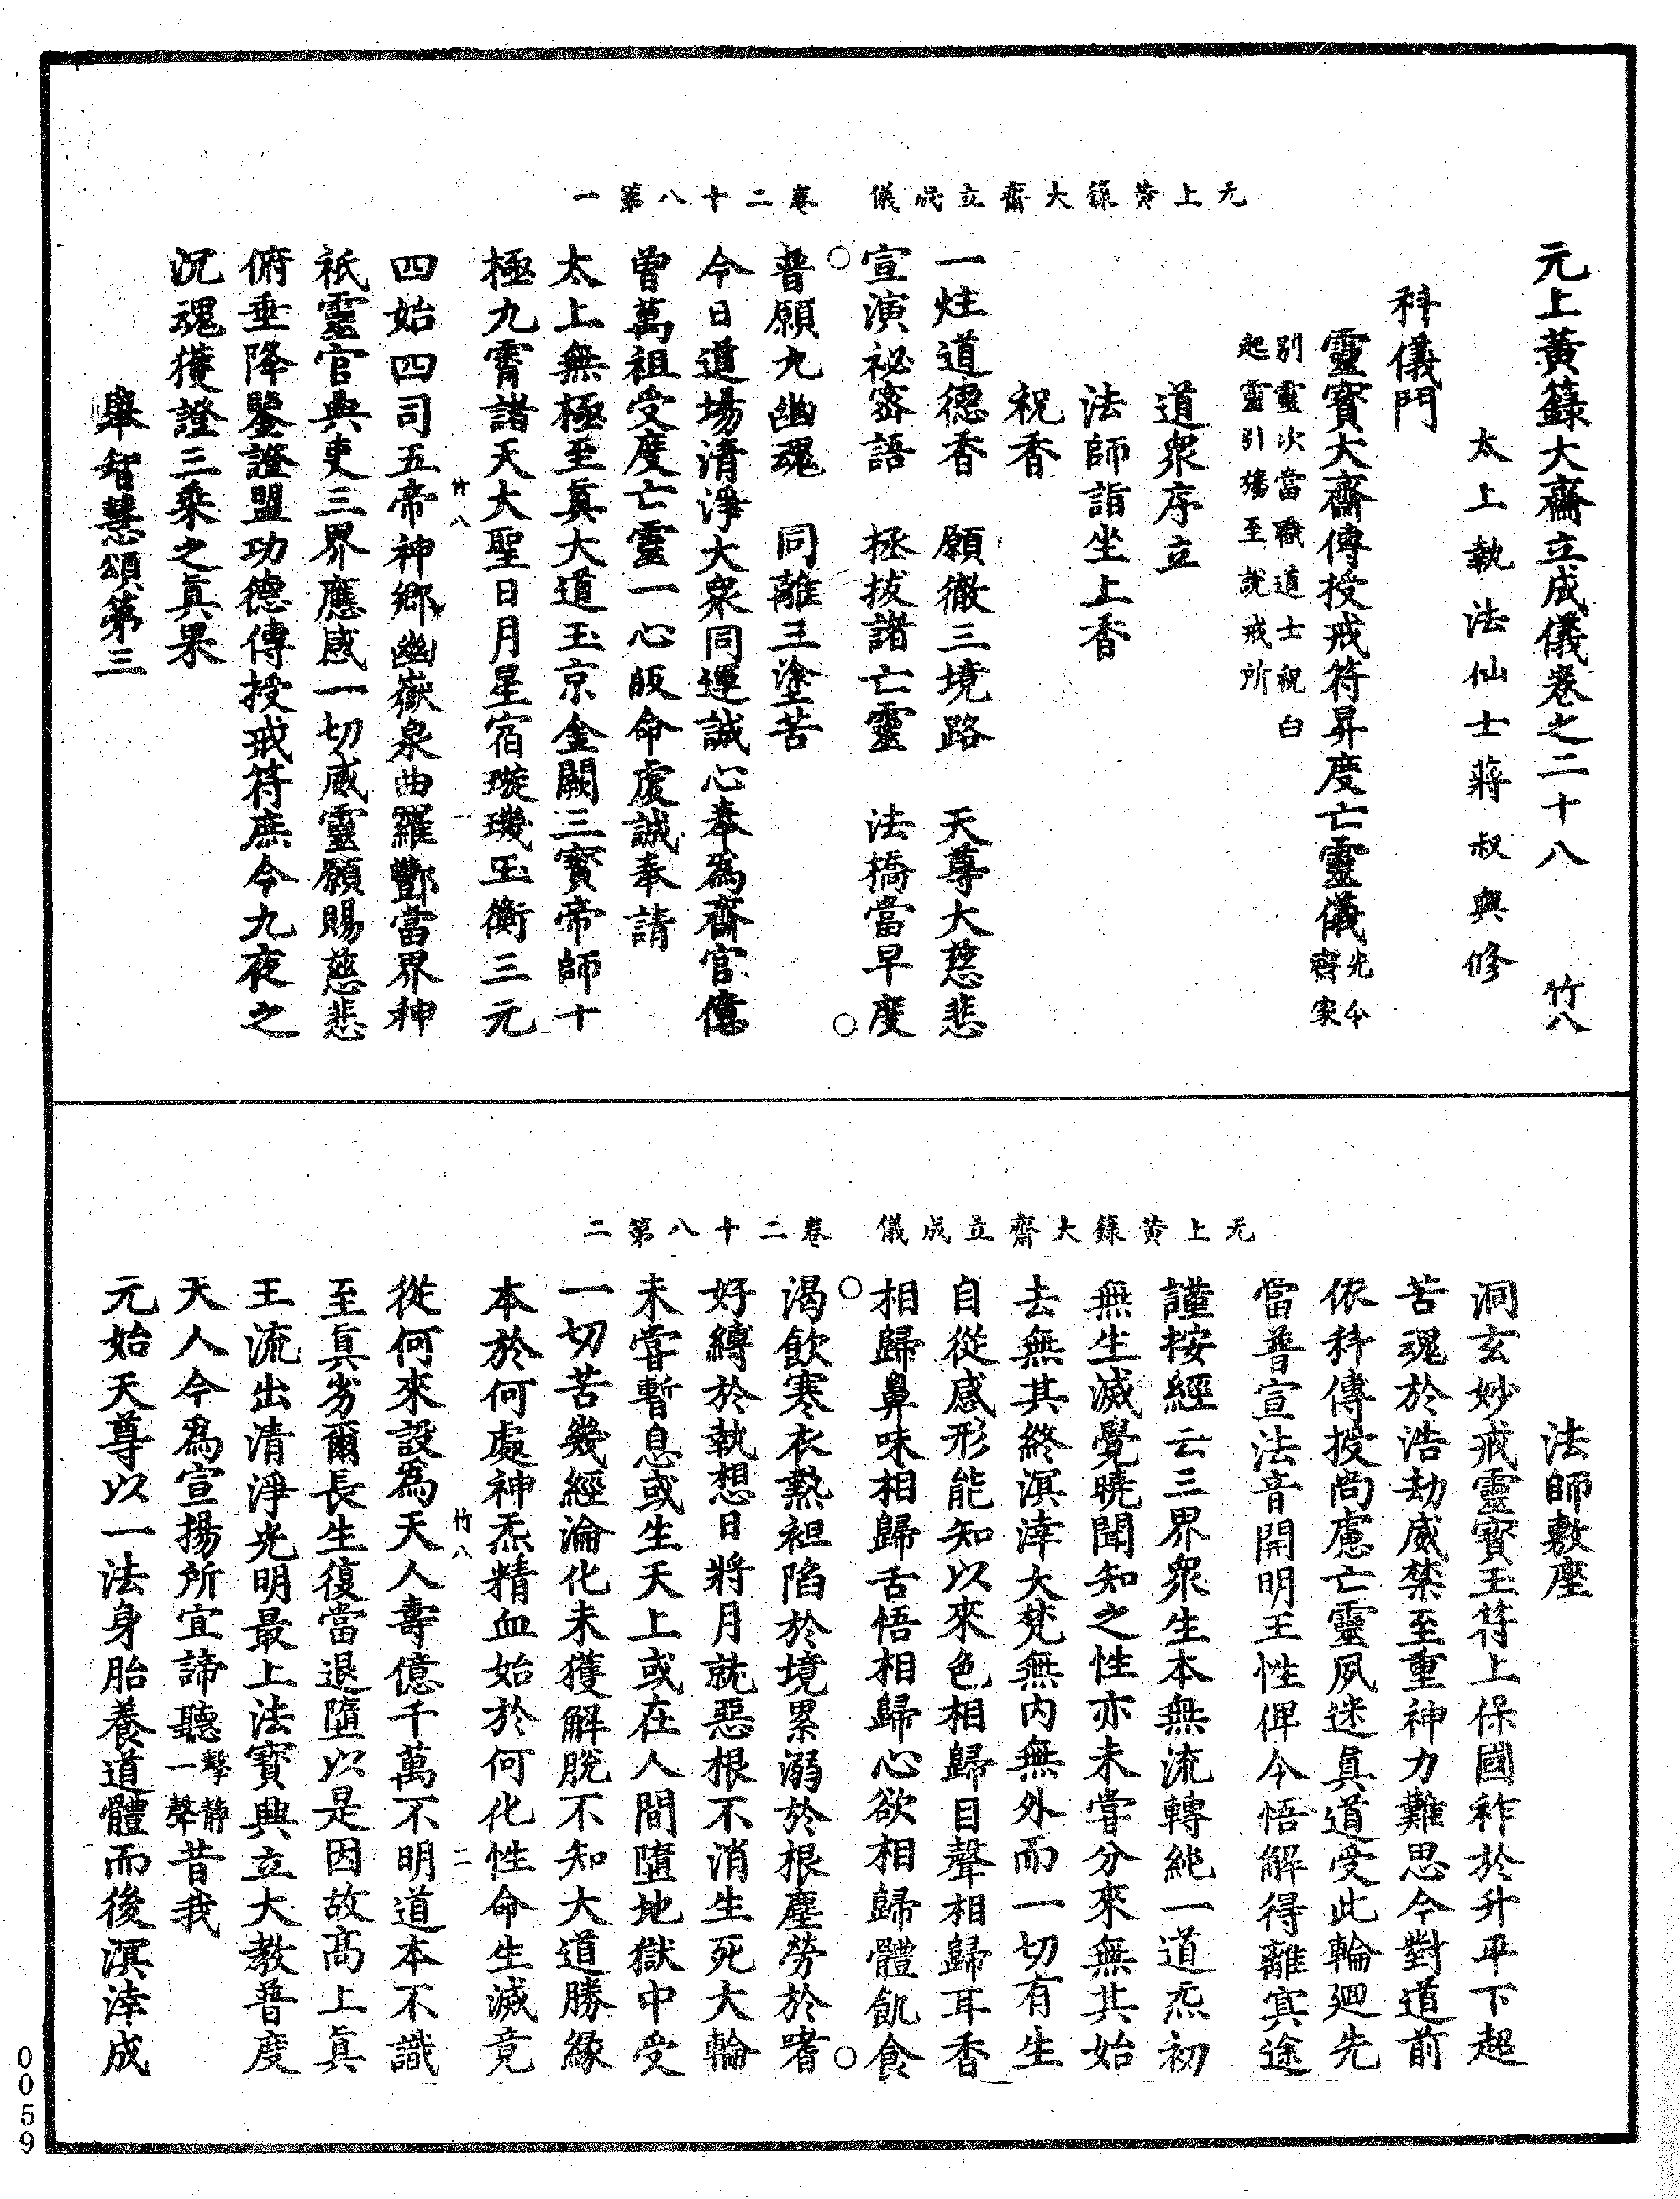 无上黃籙大齋立成儀　卷二十八第一
无上黃籙大齋立成儀卷之二十八　　竹八
太上執法仙士蔣叔輿修
科儀門
靈寶大齋傳授戒符昇度亡靈儀先令齋家
別靈次當職道士祝白
起靈引旛至說戒所
道眾序立
法師詣坐上香
祝香
一炷道德香　願徹三境路　天尊大慈悲
宣演祕密語　拯拔諸亡靈　法橋當早度
普願九幽魂　同離三塗苦
今日道場清淨大眾同運誠心奉為齋官億
曾萬祖受度亡靈一心皈命虔誠奉請
太上無極至眞大道玉京金闕三寶帝師十
極九霄諸天大聖日月星宿璇璣玉衡三元
竹八　一
四始四司五帝神鄉幽嶽泉曲羅酆當界神
祇靈官典吏三界應感一切威靈願賜慈悲
俯垂降鑒證盟功德傳授戒符庶令九夜之
沉魂獲證三乘之眞果
舉智慧頌第三
无上黃籙大齋立成儀　卷二十八第二
法師敷座
洞玄妙戒靈寶玉符上保國祚於升平下超
苦魂於浩劫威禁至重神力難思今對道前
依科傳授尚慮亡靈夙迷眞道受此輪廻先
當普宣法音開明王性俾令悟解得離㝠途
謹按經云三界衆生本無流轉純一道炁初
無生滅覺曉聞知之性亦未甞分來無其始
去無其終溟涬大梵無內無外而一切有生
自從感形能知以來色相歸目聲相歸耳香
相歸鼻味相歸舌悟相歸心欲相歸體飢食
渴飲寒衣熱袒陷於境累溺於根塵勞於嗜
好縛於執想日將月就惡根不消生死大輪
未甞暫息或生天上或在人間墮地獄中受
一切苦幾經淪化未獲解脫不知大道勝緣
本於何處神炁精血始於何化性命生滅竟
竹八　二
從何來設為天人壽億千萬不明道本不識
至眞劣爾長生復當退墮以是因故高上眞
王流出清淨光明最上法寶典立大教普度
天人今為宣揚所宜諦聽擊靜一聲昔我
元始天尊以一法身胎養道體而後溟涬成
0059